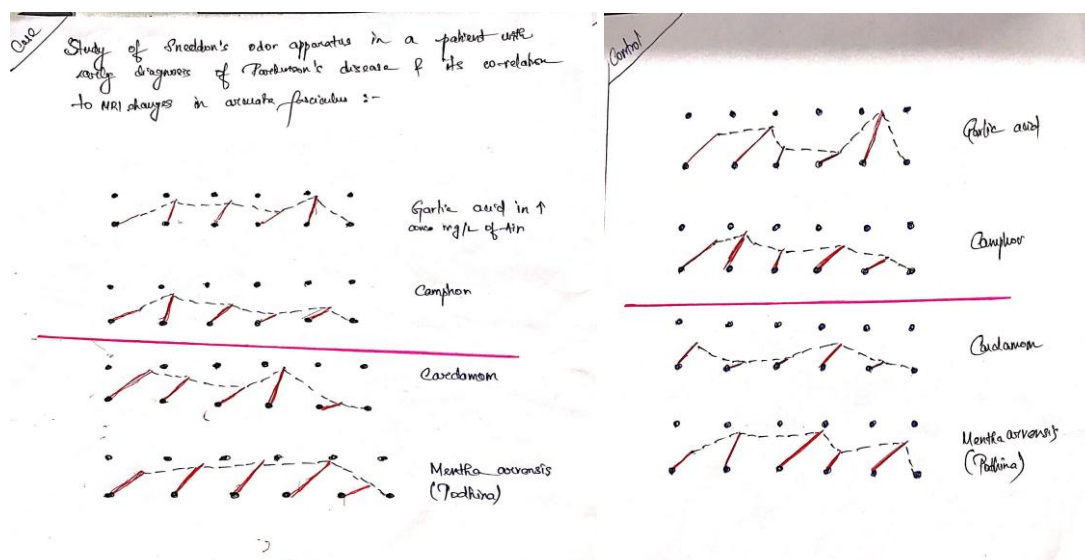 Case
Study of Sneddon's odor apparatus in a patient with
early diagnosis of Parkinson's disease & its co-relation
to MRI changes in arcuate fasciculus :-
Garlic acid in ↑
conc mg/L of Air
Camphor
Caredamom
Mentha arvensis
(Podhina)
Control
Garlic acid
Camphor
Cardamom
Mentha arvensis
(Podhina)